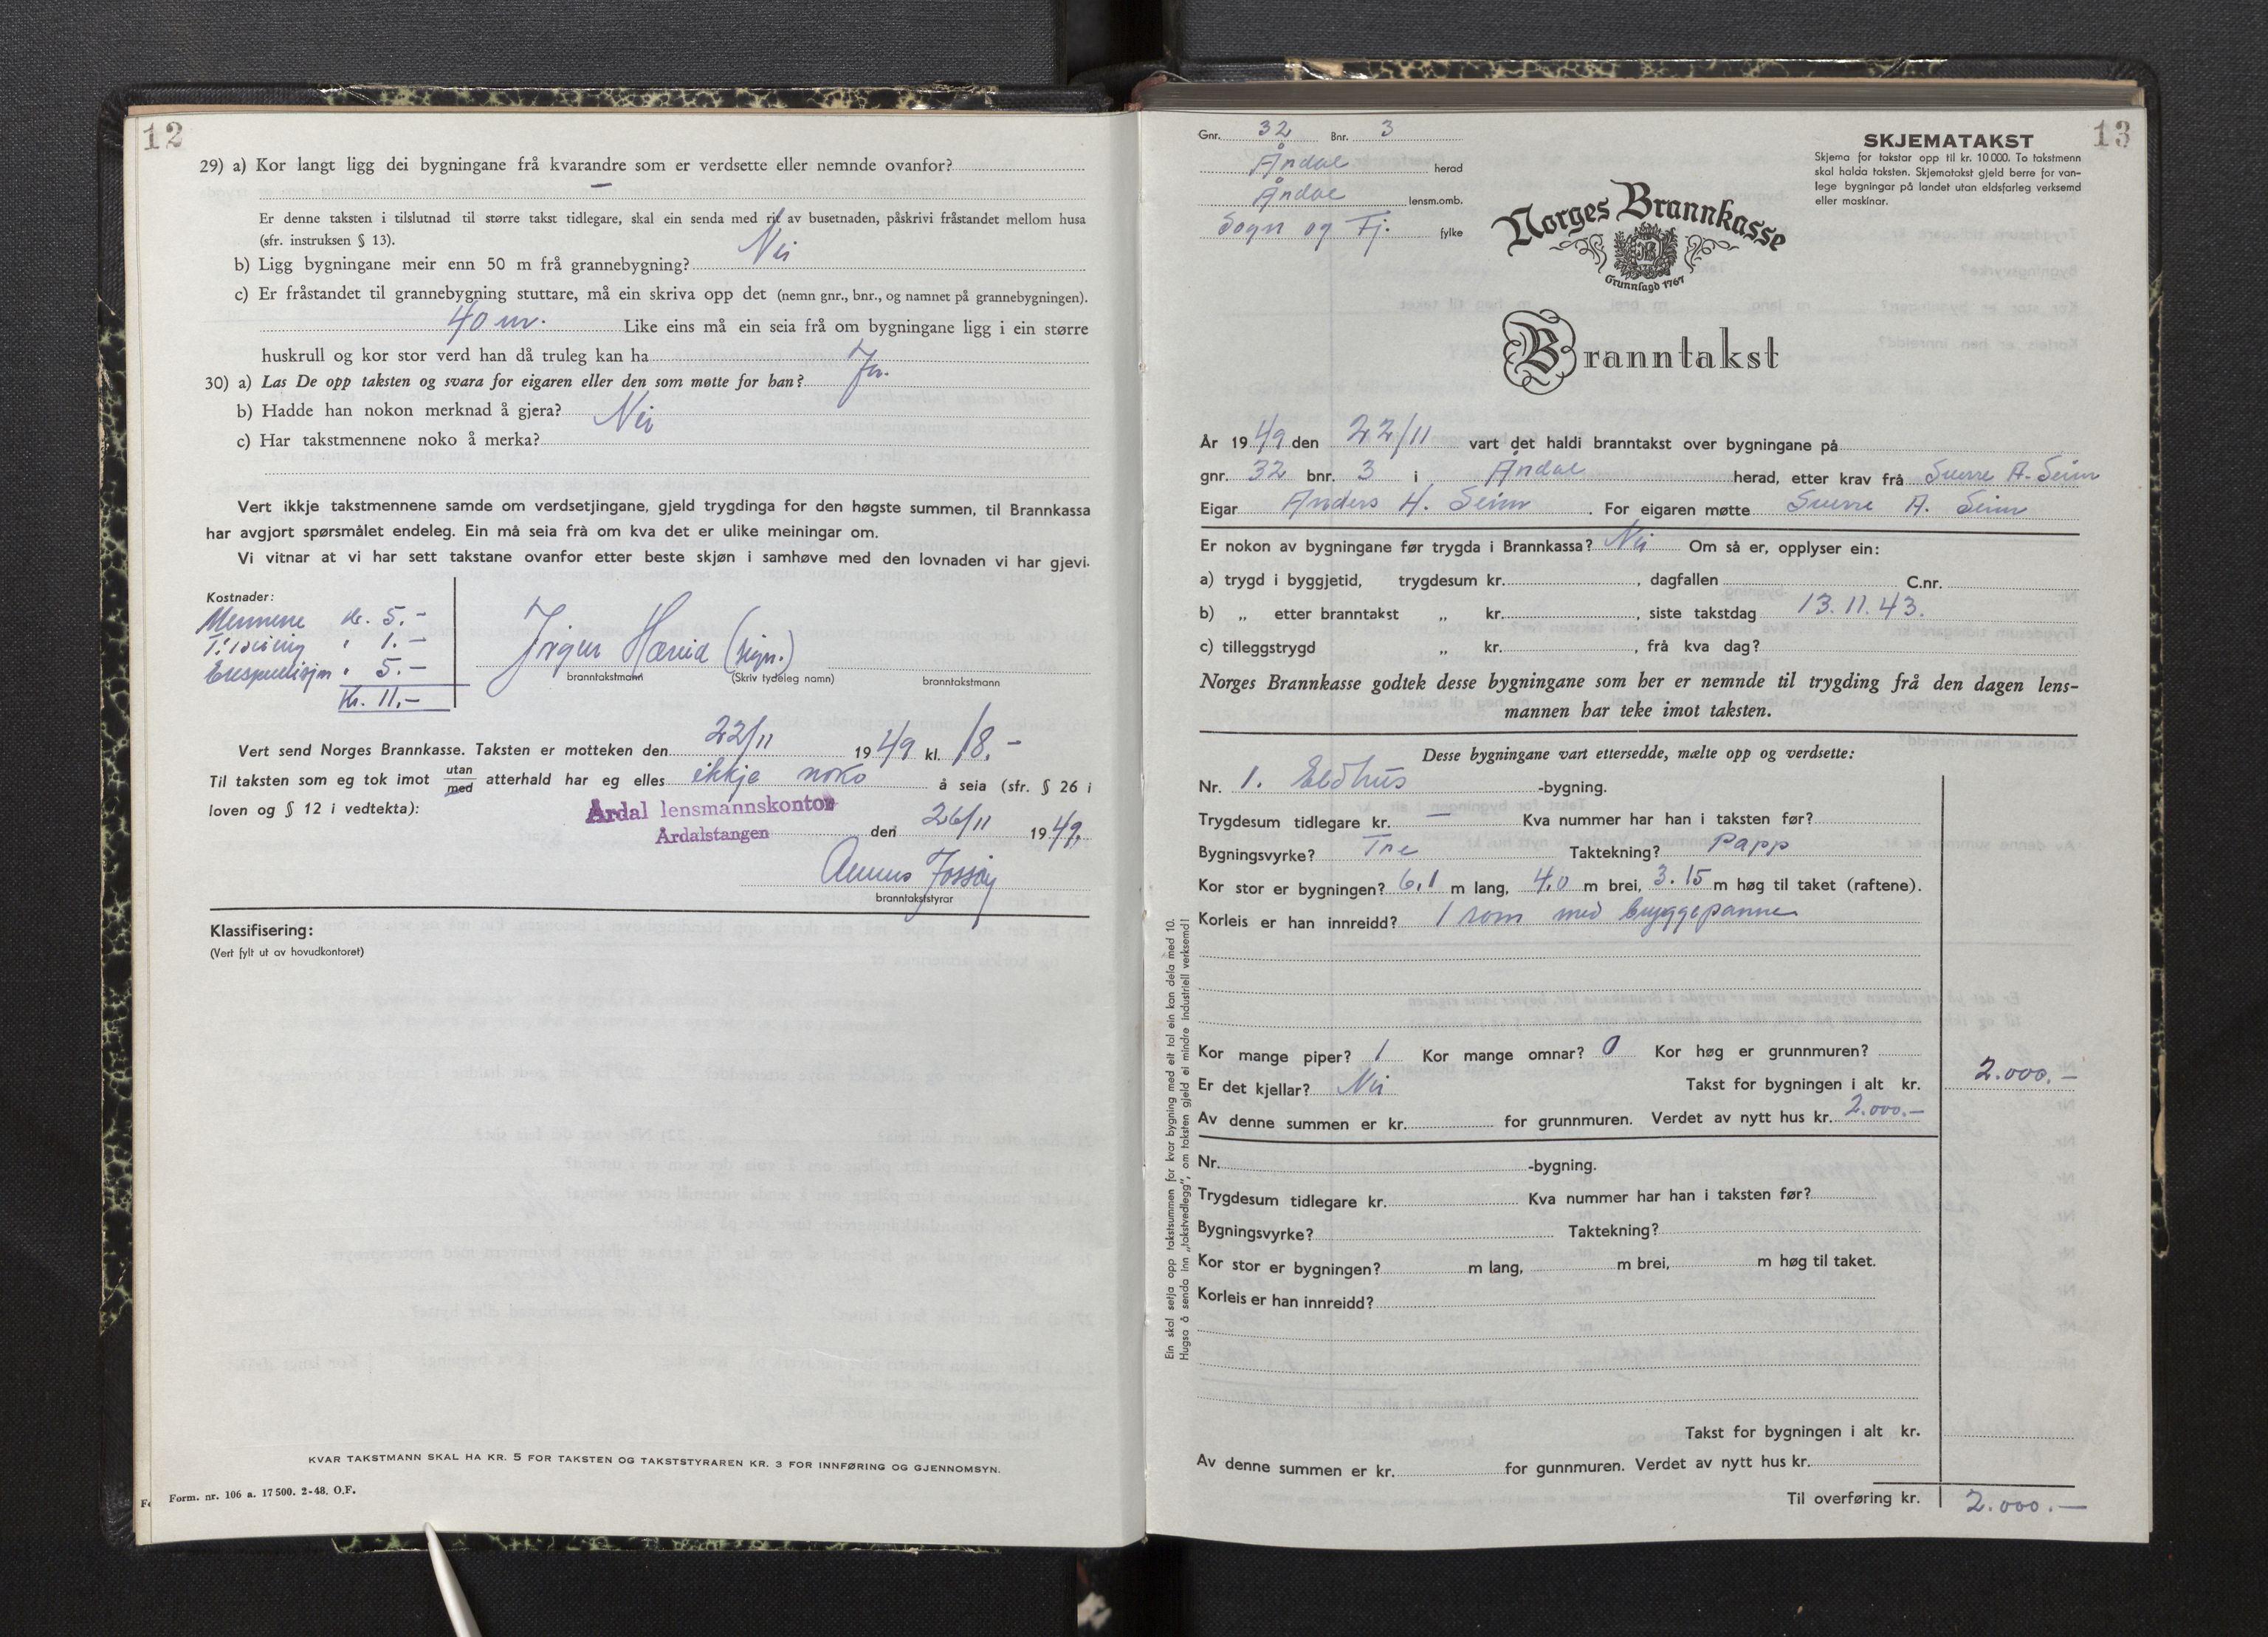 12
29) a) Kor langt ligg dei bygningane frå kvarandre som er verdsette eller nemnde ovanfor? —
Er denne taksten i tilslutnad til større takst tidlegare, skal ein senda med rit av busetnaden, påskrivi fråstandet mellom husa
(sfr. instruksen § 13).
b) Ligg bygningane meir enn 50 m frå grannebygning? Nei
c) Er fråstandet til grannebygning stuttare, må ein skriva opp det (nemn gnr., bnr., og namnet på grannebygningen).
40 m. Like eins må ein seia frå om bygningane ligg i ein større
huskrull og kor stor verd han då truleg kan ha
30) a) Las De opp taksten og svara for eigaren eller den som møtte for han? Ja.
b) Hadde han nokon merknad å gjera? Nei
c) Har takstmennene noko å merka?
Vert ikkje takstmennene samde om verdsetjingane, gjeld trygdinga for den høgste summen, til Brannkassa
har avgjort spørsmålet endeleg. Ein må seia frå om kva det er ulike meiningar om.
Vi vitnar at vi har sett takstane ovanfor etter beste skjøn i samhøve med den lovnaden vi har gjevi.
Kostnader:
Mennene kr. 5.-
" 1.-
" 5.-
Kr. 11,-
Jørgen (sign.)
branntakstmann (Skriv tydeleg namn) branntakstmann
Vert send Norges Brannkasse. Taksten er motteken den 22/11 1949 kl. 18.-
Til taksten som eg tok imot utan med atterhald har eg elles ikkje noko å seia (sfr. § 26 i
loven og § 12 i vedtekta):
Årdal lensmannskontor
Årdalstangen den 26/11 1949.
branntakststyrar
Klassifisering:
(Vert fylt ut av hovudkontoret)
KVAR TAKSTMANN SKAL HA KR. 5 FOR TAKSTEN OG TAKSTSTYRAREN KR. 3 FOR INNFØRING OG GJENNOMSYN.
Form. nr. 106 a. 17 500. 2-48. O.F.
13
Gnr. 32 Bnr. 3
Årdal herad
Årdal lensm.omb.
Sogn og Fj. fylke
SKJEMATAKST
Skjema for takstar opp til kr. 10 000. To takstmenn
skal halda taksten. Skjematakst gjeld berre for van-
lege bygningar på landet utan eldsfarleg verksemd
eller maskinar.
Norges Brannkasse
Grunnlagd 1767
Branntakst
År 1949 den 22/11 vart det haldi branntakst over bygningane på
gnr. 32 bnr. 3 i Årdal herad, etter krav frå Sverre A. Seim
Eigar Anders H. Seim. For eigaren møtte Sverre A. Seim
Er nokon av bygningane før trygda i Brannkassa? Nei Om så er, opplyser ein:
a) trygd i byggjetid, trygdesum kr. , dagfallen C.nr.
b) „ etter branntakst „ kr. , siste takstdag 13.11.43.
c) tilleggstrygd „ kr. , frå kva dag?
Norges Brannkasse godtek desse bygningane som her er nemnde til trygding frå den dagen lens-
mannen har teke imot taksten.
Desse bygningane vart ettersedde, mælte opp og verdsette:
Nr. 1. Eldhus -bygning.
Trygdesum tidlegare kr. — Kva nummer har han i taksten før?
Bygningsvyrke? Tre Taktekning? Papp
Kor stor er bygningen? 6,1 m lang, 4,0 m brei, 3.15 m høg til taket (raftene).
Korleis er han innreidd? 1 rom med bryggepanne
Kor mange piper? 1 Kor mange omnar? 0 Kor høg er grunnmuren?
Er det kjellar? Nei Takst for bygningen i alt kr. 2.000.-
Av denne summen er kr. for grunnmuren. Verdet av nytt hus kr. 2.000.-
Nr. -bygning.
Trygdesum tidlegare kr. Kva nummer har han i taksten før?
Bygningsvyrke? Taktekning?
Kor stor er bygningen? m lang, m brei, m høg til taket.
Korleis er han innreidd?
Takst for bygningen i alt kr.
Av denne summen er kr. for gunnmuren. Verdet av nytt hus kr.
Til overføring kr. 2.000.-
Ein skal setja opp takstsummen for kvar bygning med eit tal ein kan dela med 10.
Hugsa å senda inn „takstvedlegg", om taksten gjeld ei mindre industriell verksemd!